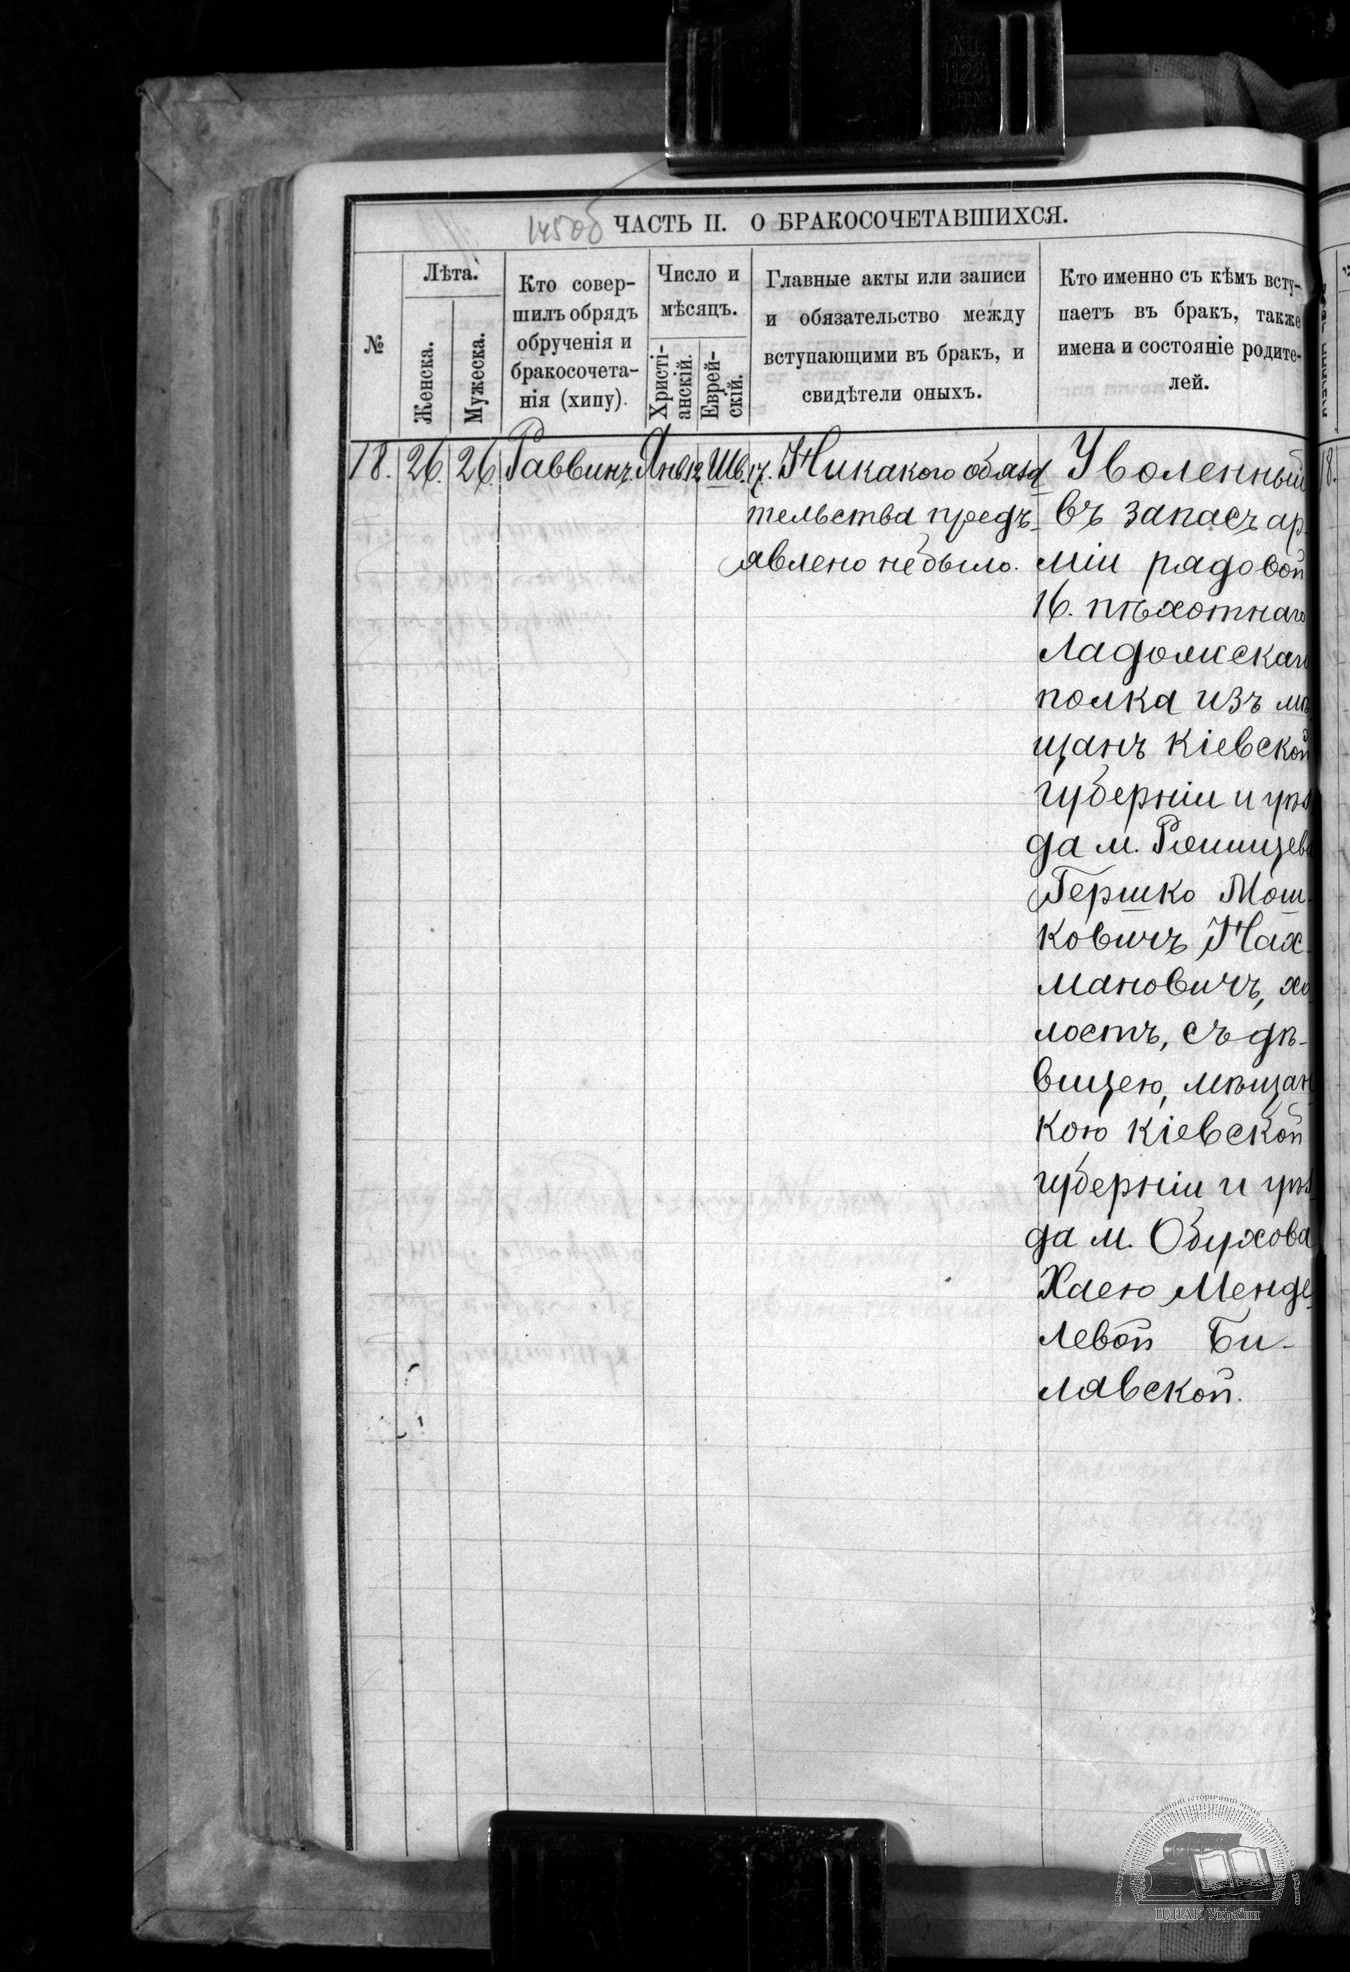 145об
ЧАСТЬ II. О БРАКОСОЧЕТАВШИХСЯ.
№
Лѣта.
Женска.
Мужеска.
Кто совер-
шилъ обрядъ
обрученія и
бракосочета-
нія (хипу).
Число и
мѣсяцъ.
Христі-
анскій.
Еврей-
скій.
Главные акты или записи
и обязательство между
вступающими въ бракъ, и
свидѣтели оныхъ.
Кто именно съ кѣмъ всту-
паетъ въ бракъ, также
имена и состояніе родите-
лей.
18. 26. 26. Раввинъ. Янв. 12 Шв. 17. Никакого обяза
тельства предъ-
явлено не было.
Уволенный
въ запасъ ар
міи рядовой
16. пѣхотнаго
Ладожскаго
полка изъ мѣ
щанъ Кіевской
губерніи и уѣз
да м. Ржищева
Гершко Мош-
ковичъ Нах-
мановичъ, хо
лостъ, съ дѣ-
вицею, мѣщан
кою Кіевской
губерніи и уѣз
да м. Обухова
Хаею Менде
левой Би-
лявской.
18.
ЦДІАК України